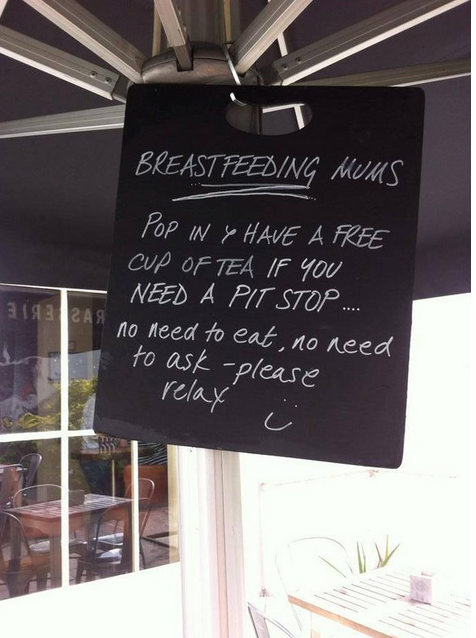 BREASTFEEDING MUMS
POP IN & HAVE A FREE
CUP OF TEA IF YOU
NEED A PIT STOP....
no need to eat, no need
to ask - please
relax